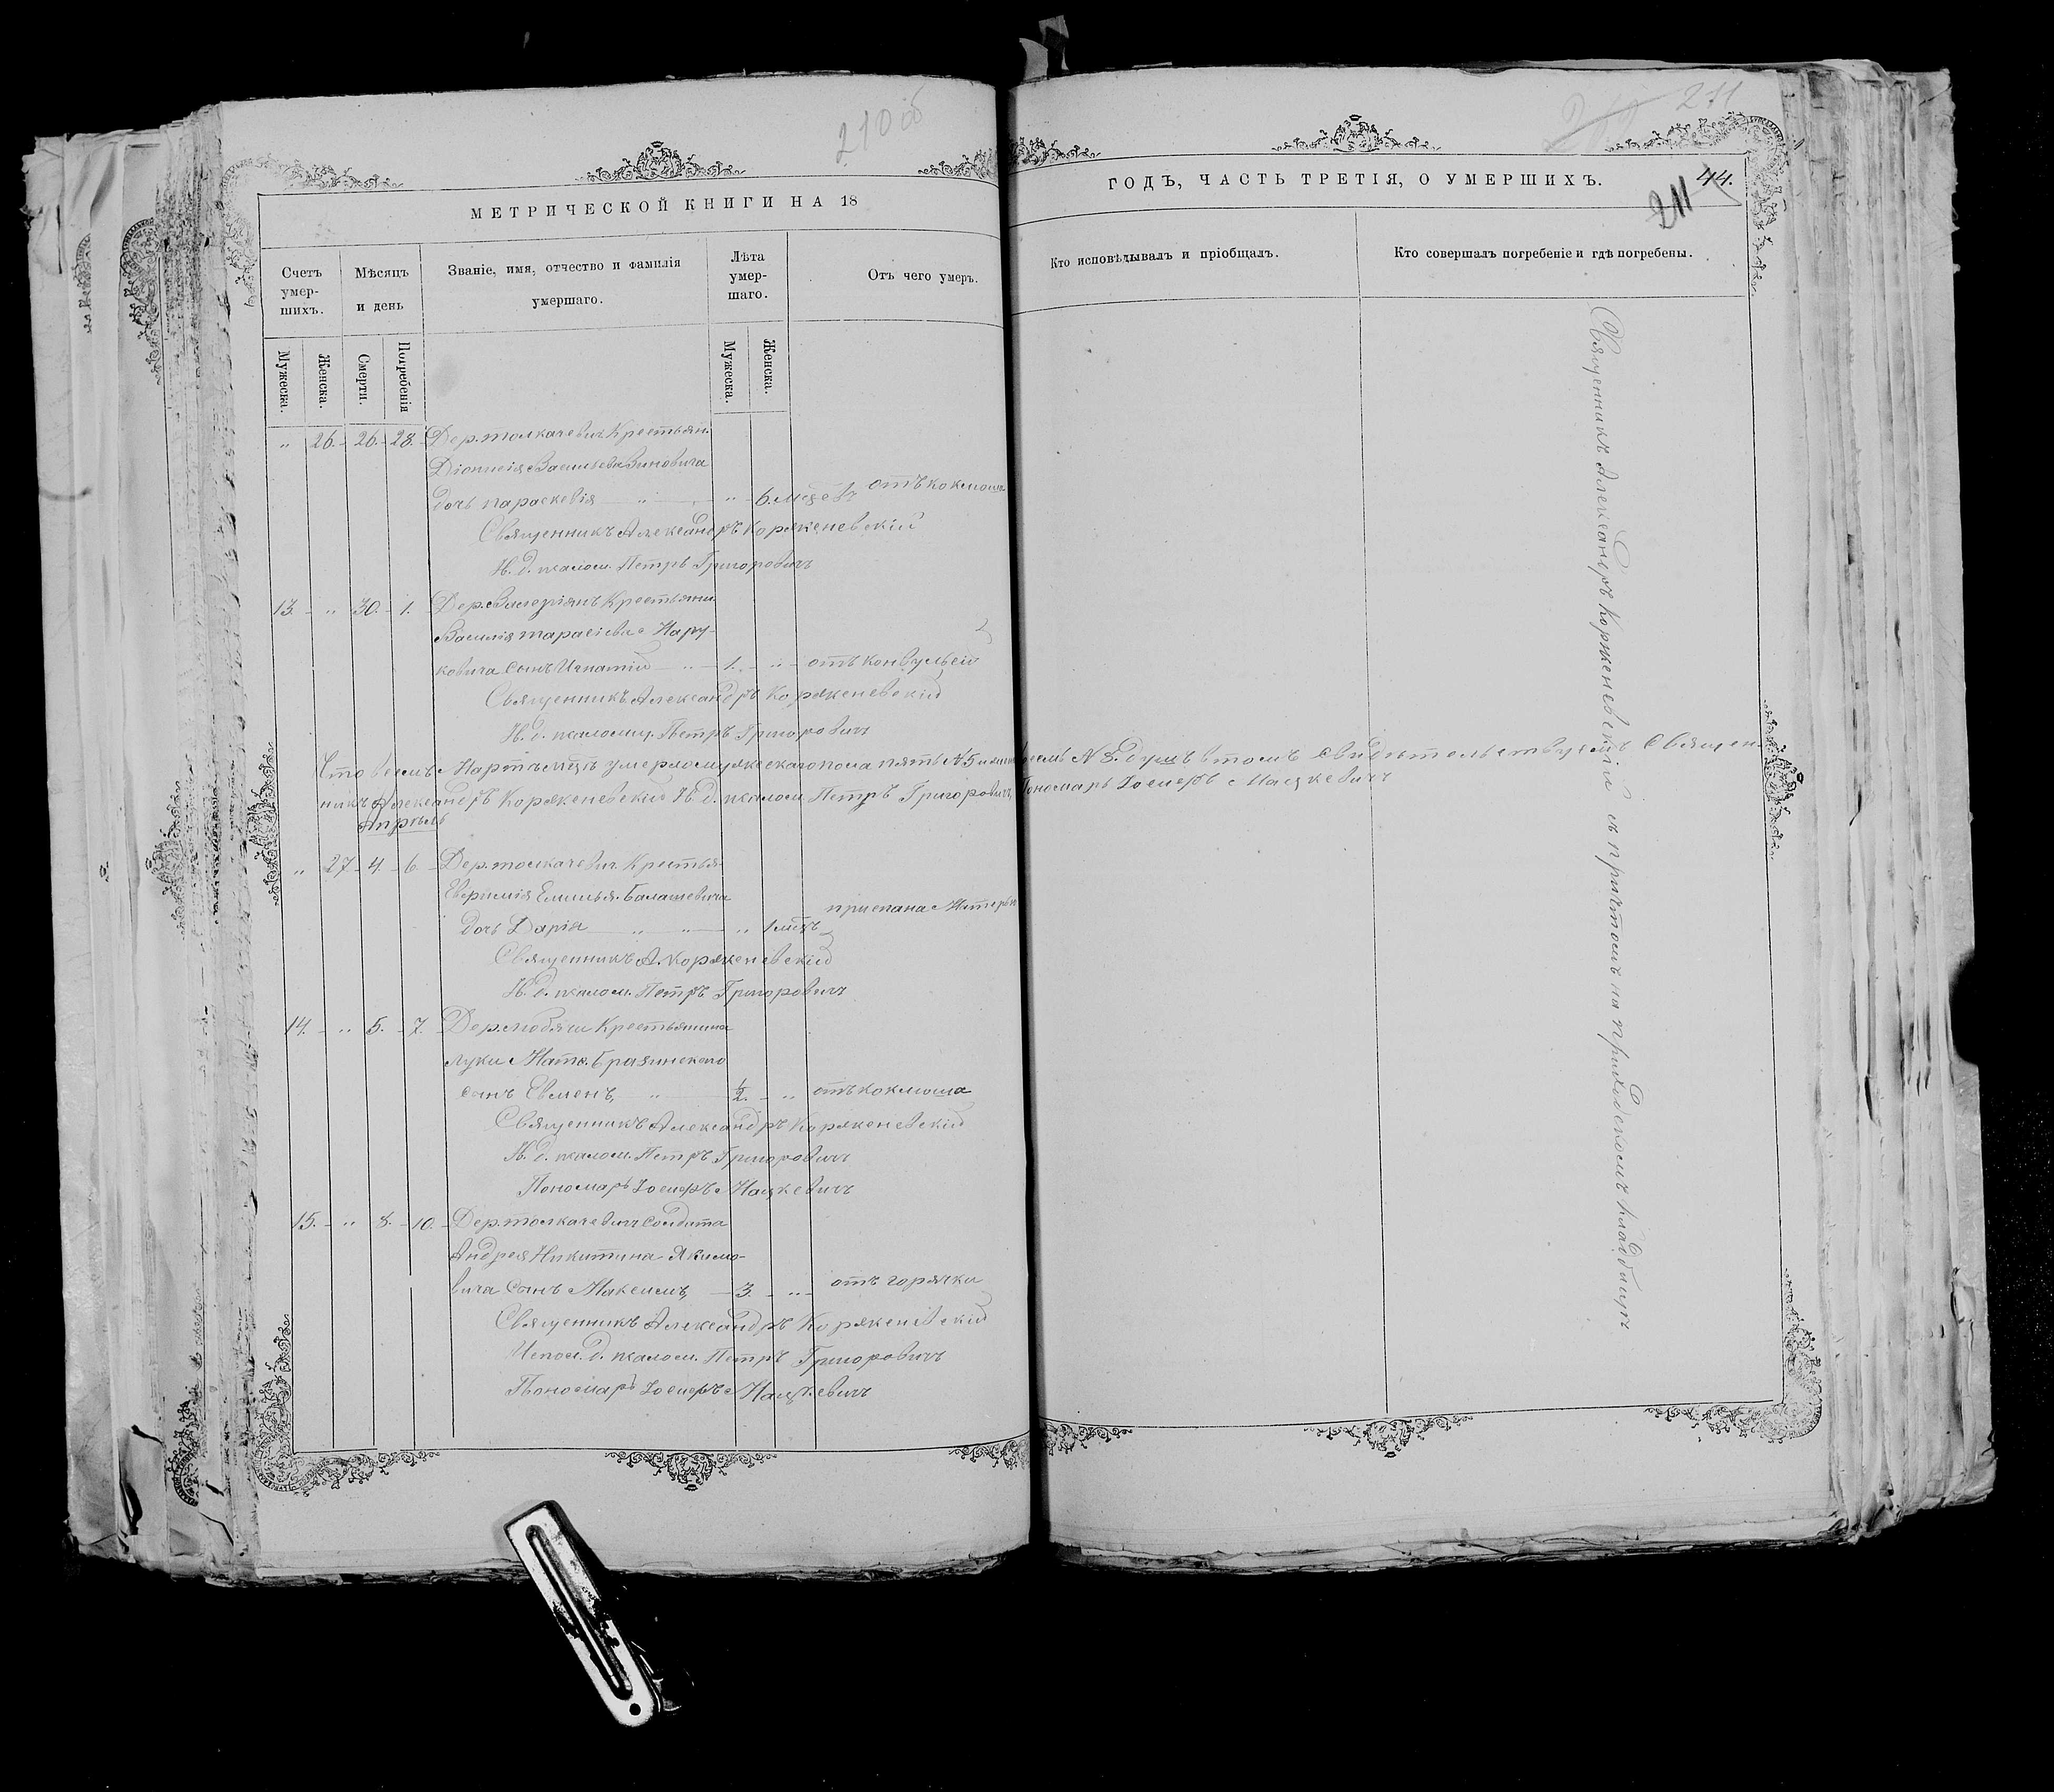 210 об
211
МЕТРИЧЕСКОЙ КНИГИ НА 18
ГОДЪ, ЧАСТЬ ТРЕТІЯ, О УМЕРШИХЪ.
44.
211
Счетъ умер-шихъ.
Мѣсяцъ и день
Званіе, имя, отчество и фамилія умершаго.
Лѣта умер-шаго.
Отъ чего умеръ.
Кто исповѣдывалъ и пріобщалъ.
Кто совершалъ погребеніе и гдѣ погребены.
Мужеска.
Женска.
Смерти.
Погребенія
Мужеска.
Женска.
" 26. 26. 28. Дер. Толкачевич Крестьян.
Діонисія Васильева Зиновича
дочь Параскевія " " 6. мѣс. отъ коклюша
Священникъ Александръ Корженевскій
И. д. псалом. Петръ Григоровичъ
13. " 30. 1. Дер. Валеріянъ Крестьяни.
Василія Тарасіева Нару-
ковича сынъ Игнатій " 1. " отъ конвульсій
Священникъ Александръ Корженевскій
И. д. псаломщ. Петръ Григоровичъ
Что въ семъ Мартѣ мѣсяцѣ умерло мужескаго пола пять № 5 и восемь № 8. душъ въ томъ свидѣтельствуемъ Священ-
никъ Александръ Корженевскій И. д. псалом. Петръ Григоровичъ Пономарь Іосифъ Мацкевичъ
Апрѣль
" 27 4. 6. Дер. Толкачевич. Крестья.
Евфимія Емилья. Балашевича
дочь Дарія " " " 1 мѣс.
Священникъ А. Корженевскій
И. д. псалом. Петръ Григоровичъ
14. " 5. 7. Дер. Крестьянина
Луки Матв. Бразинскаго
сынъ Евменъ, " 1/2. " отъ коклюша
Священникъ Александръ Корженевскій
И. д. псалом. Петръ Григоровичъ
Пономарь Іосифъ Мацкевичъ
15. " 8. 10. Дер. Толкачевичъ Солдата
Андрея Никитина Якимо-
вича сынъ Максимъ, 3. " отъ горячки
Священникъ Александръ Корженевскій
Испол. д. псалом. Петръ Григоровичъ
Пономарь Іосифъ Мацкевичъ
Священникъ Александръ Корженевскій съ причтомъ на приходскомъ кладбищѣ